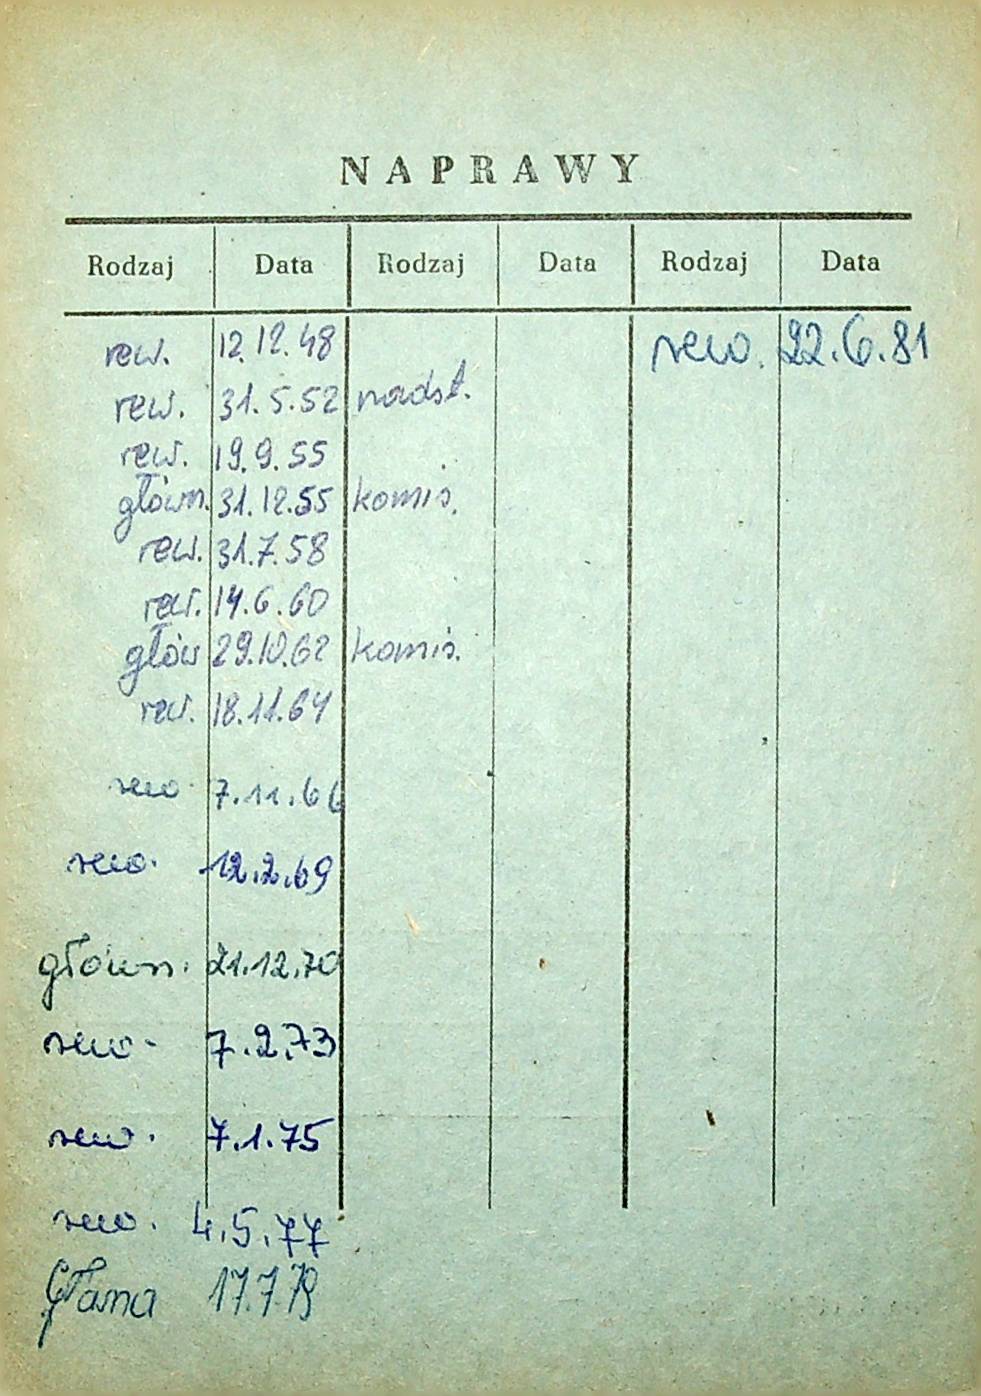 NAPRAWY
Rodzaj Data Rodzaj Data Rodzaj Data
rew. 12.12.48 rew. 22.6.81
rew. 31.5.52 nadst.
rew. 19.9.55
główn. 31.12.55 komis.
rew. 31.7.58
rew. 14.6.60
głów 29.10.62 komis.
rew. 18.11.64
rew. 7.11.66
rew. 12.2.69
główn. 21.12.70
rew. 7.2.73
rew. 7.1.75
rew. 4.5.77
17.7.79